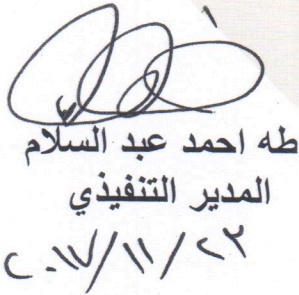 طه احمد عبد السلام
المدير التنفيذي
٢٠١٧/١١/٢٣